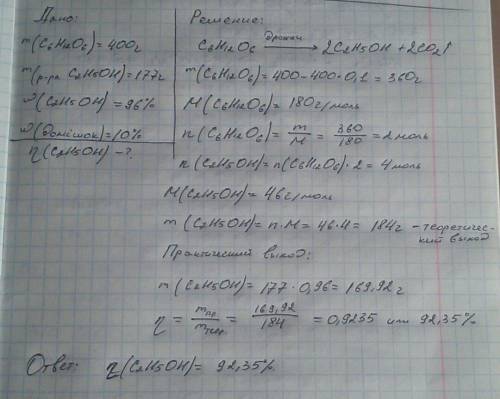 Дано:
m(C6H12O6) = 400г
m(р-ра C2H5OH) = 177г
ω(C2H5OH) = 96%
ω(домішок) = 10%
η(C2H5OH) - ?
Решение:
дрожжи
C6H12O6 → 2C2H5OH + 2CO2↑
m(C6H12O6) = 400 - 400 · 0,1 = 360г
M(C6H12O6) = 180г/моль
n(C6H12O6) = m/M = 360/180 = 2 моль
n(C2H5OH) = n(C6H12O6) · 2 = 4 моль
M(C2H5OH) = 46г/моль
m(C2H5OH) = n · M = 46 · 4 = 184г - теоретичес-
кий выход
Практический выход:
m(C2H5OH) = 177 · 0,96 = 169,92г
η = mпр/mтеор = 169,92/184 = 0,9235 или 92,35%
Ответ: η(C2H5OH) = 92,35%